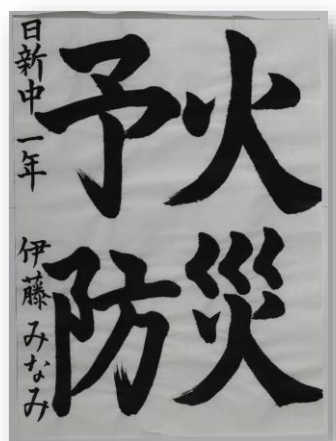 火災
予防
日新中一年 伊藤みなみ